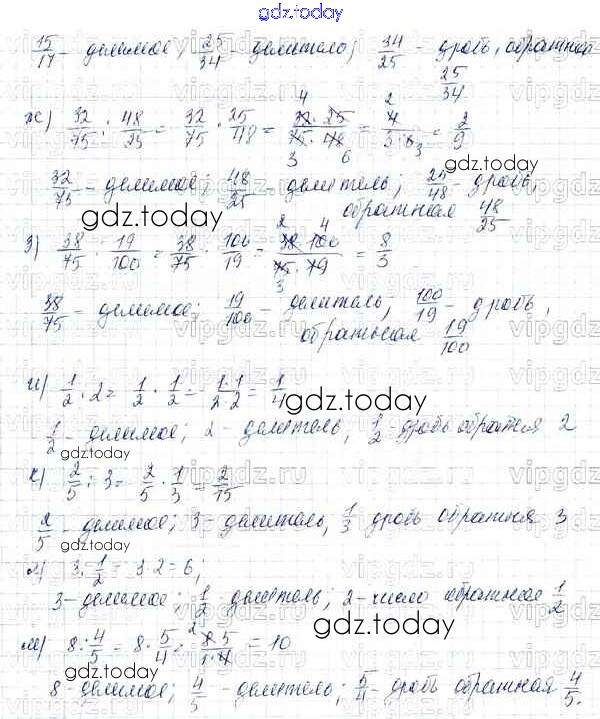 gdz.today
15/17 - делимое; 25/34 - делитель; 34/25 - дробь, обратная
25/34.
ж) 32/75 : 48/25 = 32/75 · 25/48 = 32·25/75·48 = 4/3·6 = 2/9
32/75 - делимое; 48/25 - делитель; 25/48 - дробь,
обратная 48/25
gdz.today
з) 38/75 : 19/100 = 38/75 · 100/19 = 38·100/75·19 = 8/3
38/75 - делимое; 19/100 - делитель; 100/19 - дробь,
обратная 19/100
и) 1/2 : 2 = 1/2 · 1/2 = 1·1/2·2 = 1/4
gdz.today
1/2 - делимое; 2 - делитель, 1/2 - дробь обратая 2
к) 2/5 : 3 = 2/5 · 1/3 = 2/15
2/5 - делимое; 3 - делитель, 1/3 дробь обратная 3
gdz.today
л) 3 : 1/2 = 3·2 = 6;
3 - делимое; 1/2 - делитель; 2 - число обратное 1/2
gdz.today
м) 8 : 4/5 = 8 · 5/4 = 8·5/1·4 = 10
8 - делимое; 4/5 - делитель; 5/4 - дробь обратная 4/5.
vipgdz.ru